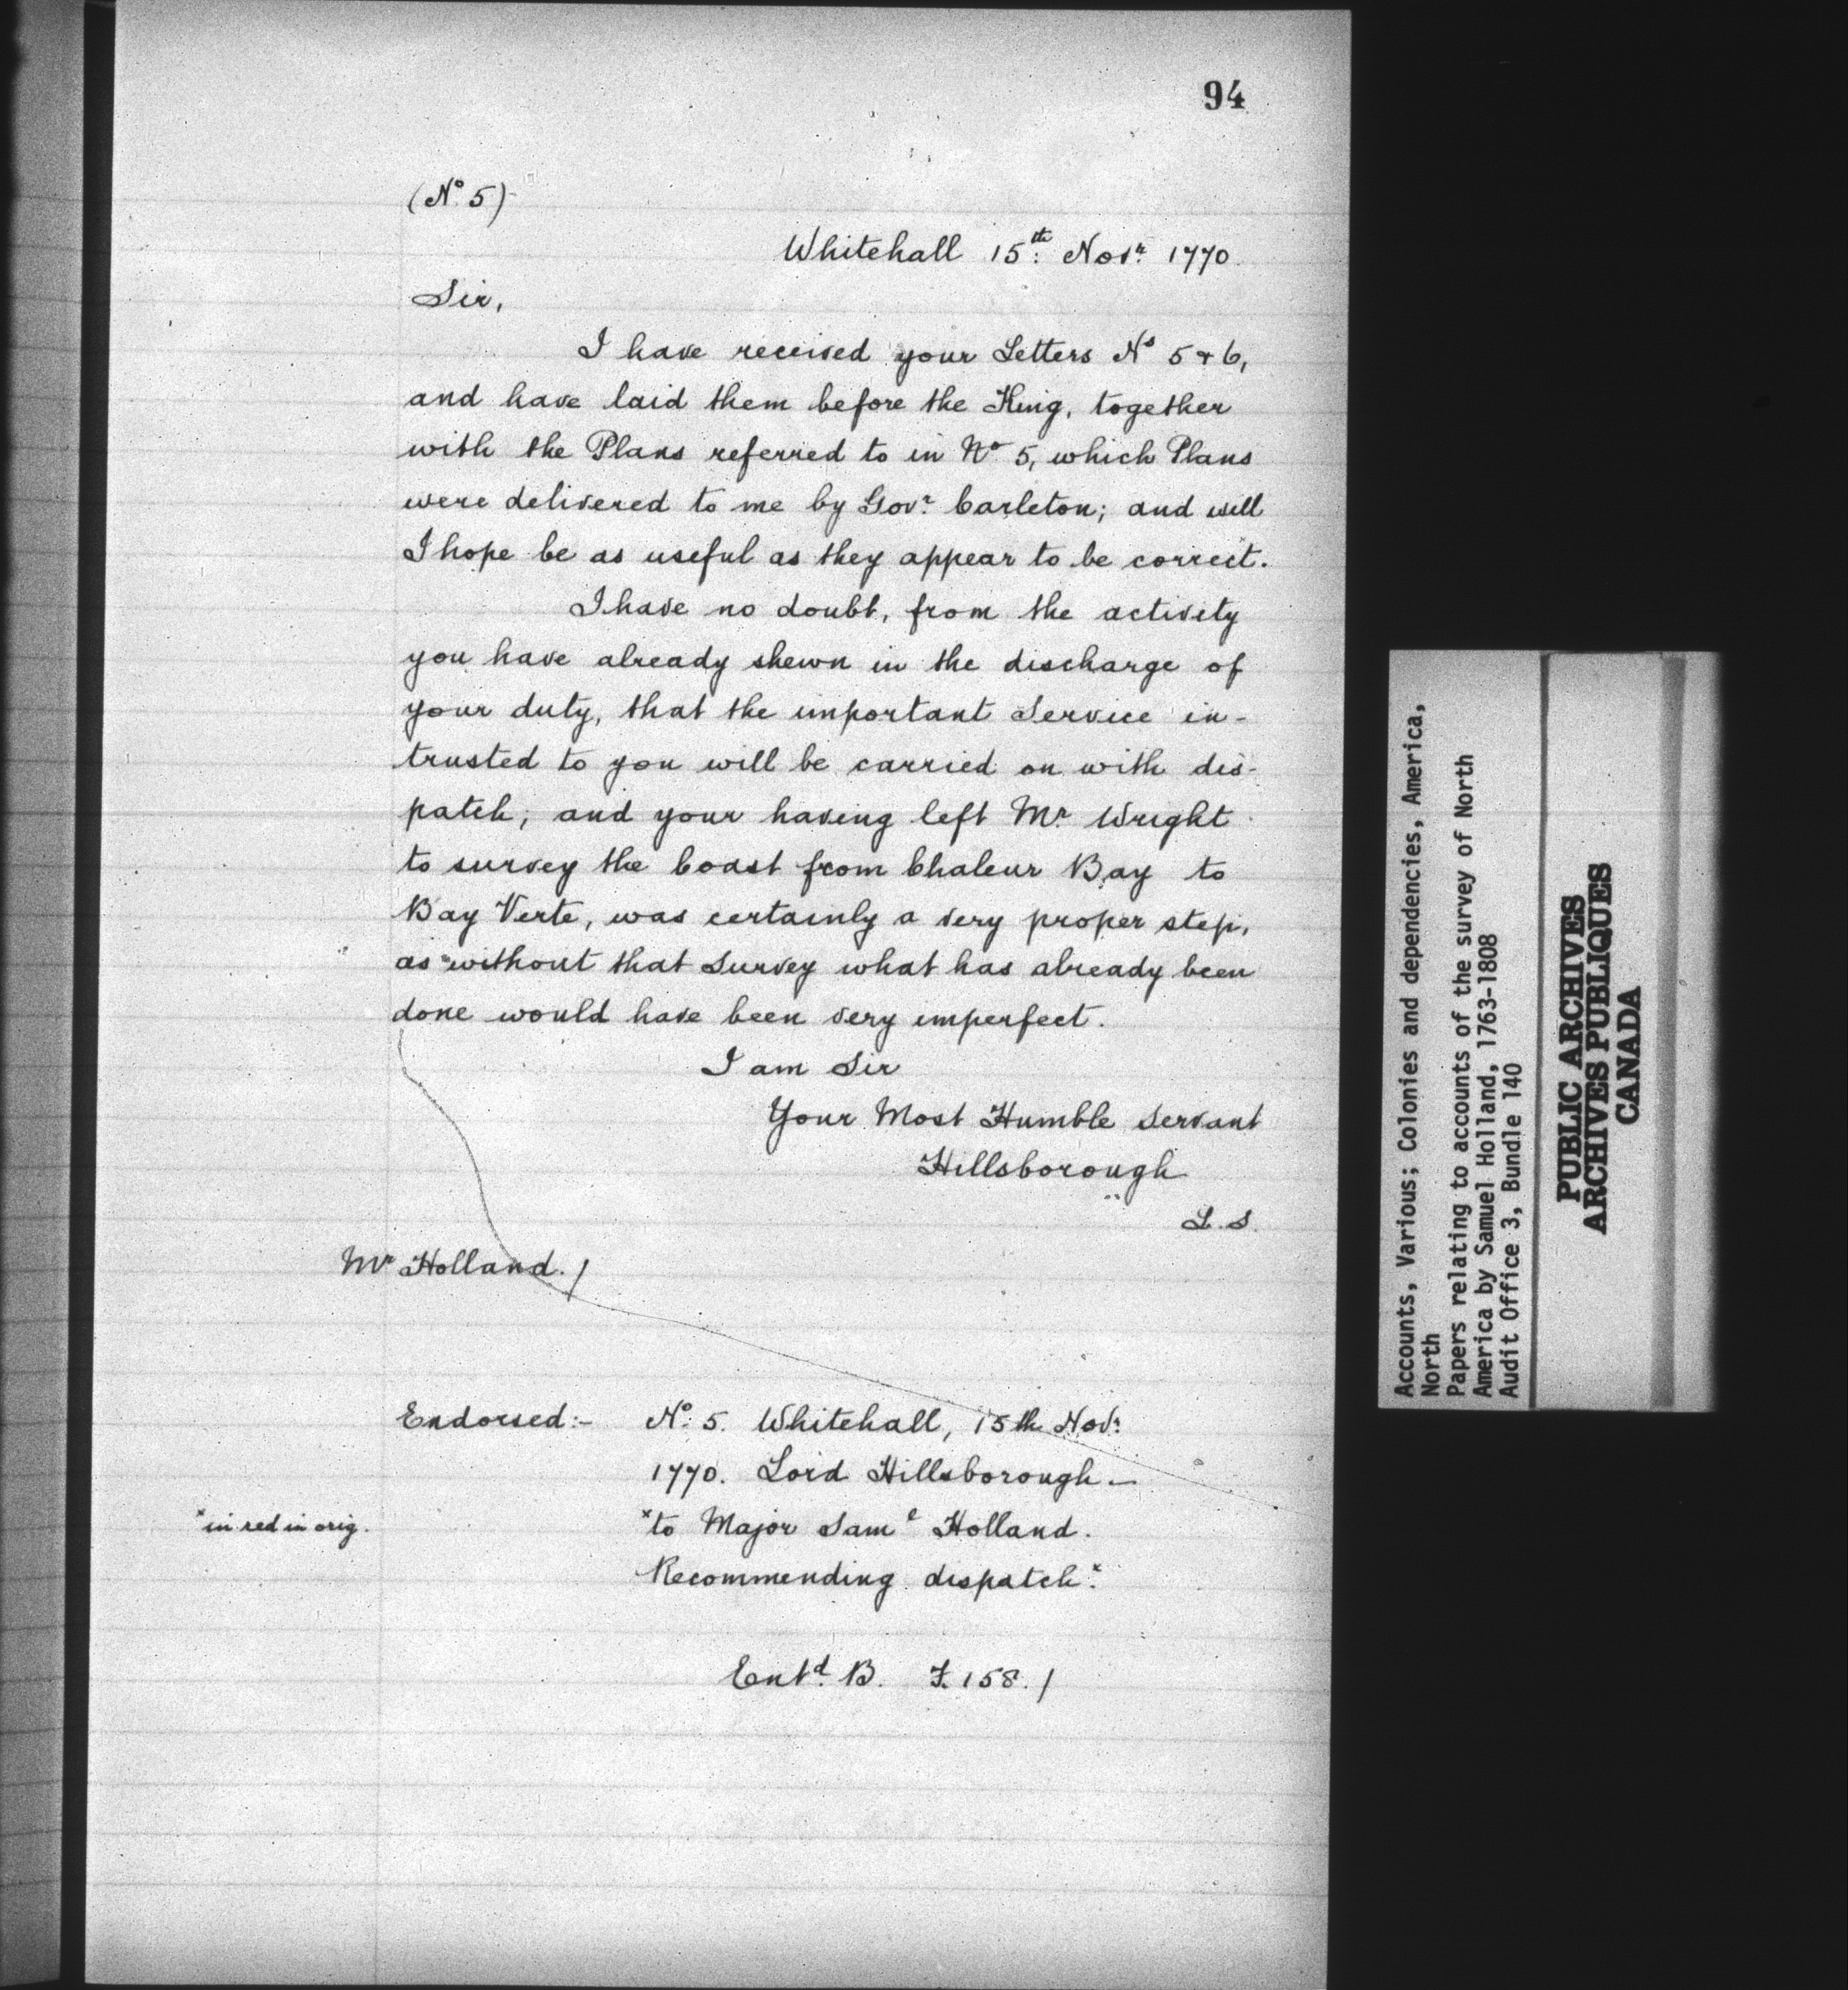 94
(No. 5)
Whitehall 15th: Novr. 1770.
Sir,
I have received your Letters Ns 5 & 6,
and have laid them before the King, together
with the Plans referred to in No. 5, which Plans
were delivered to me by Govr. Carleton; and will
I hope be as useful as they appear to be correct.
I have no doubt, from the activity
you have already shewn in the discharge of
your duty, that the important Service in-
trusted to you will be carried on with dis-
patch; and your having left Mr. Wright
to survey the Coast from Chaleur Bay to
Bay Verte, was certainly a very proper step,
as without that Survey what has already been
done would have been very imperfect.
I am Sir
Your Most Humble Servant
Hillsborough
L.S.
Mr Holland./
Endorsed:- No. 5. Whitehall, 15th Novr.
1770. Lord Hillsborough—
x in red in orig.
x to Major Saml Holland.
Recommending dispatch.x
Entd. B. F. 158./
Accounts, Various; Colonies and dependencies, America,
North
Papers relating to accounts of the survey of North
America by Samuel Holland, 1763-1808
Audit Office 3, Bundle 140
PUBLIC ARCHIVES
ARCHIVES PUBLIQUES
CANADA